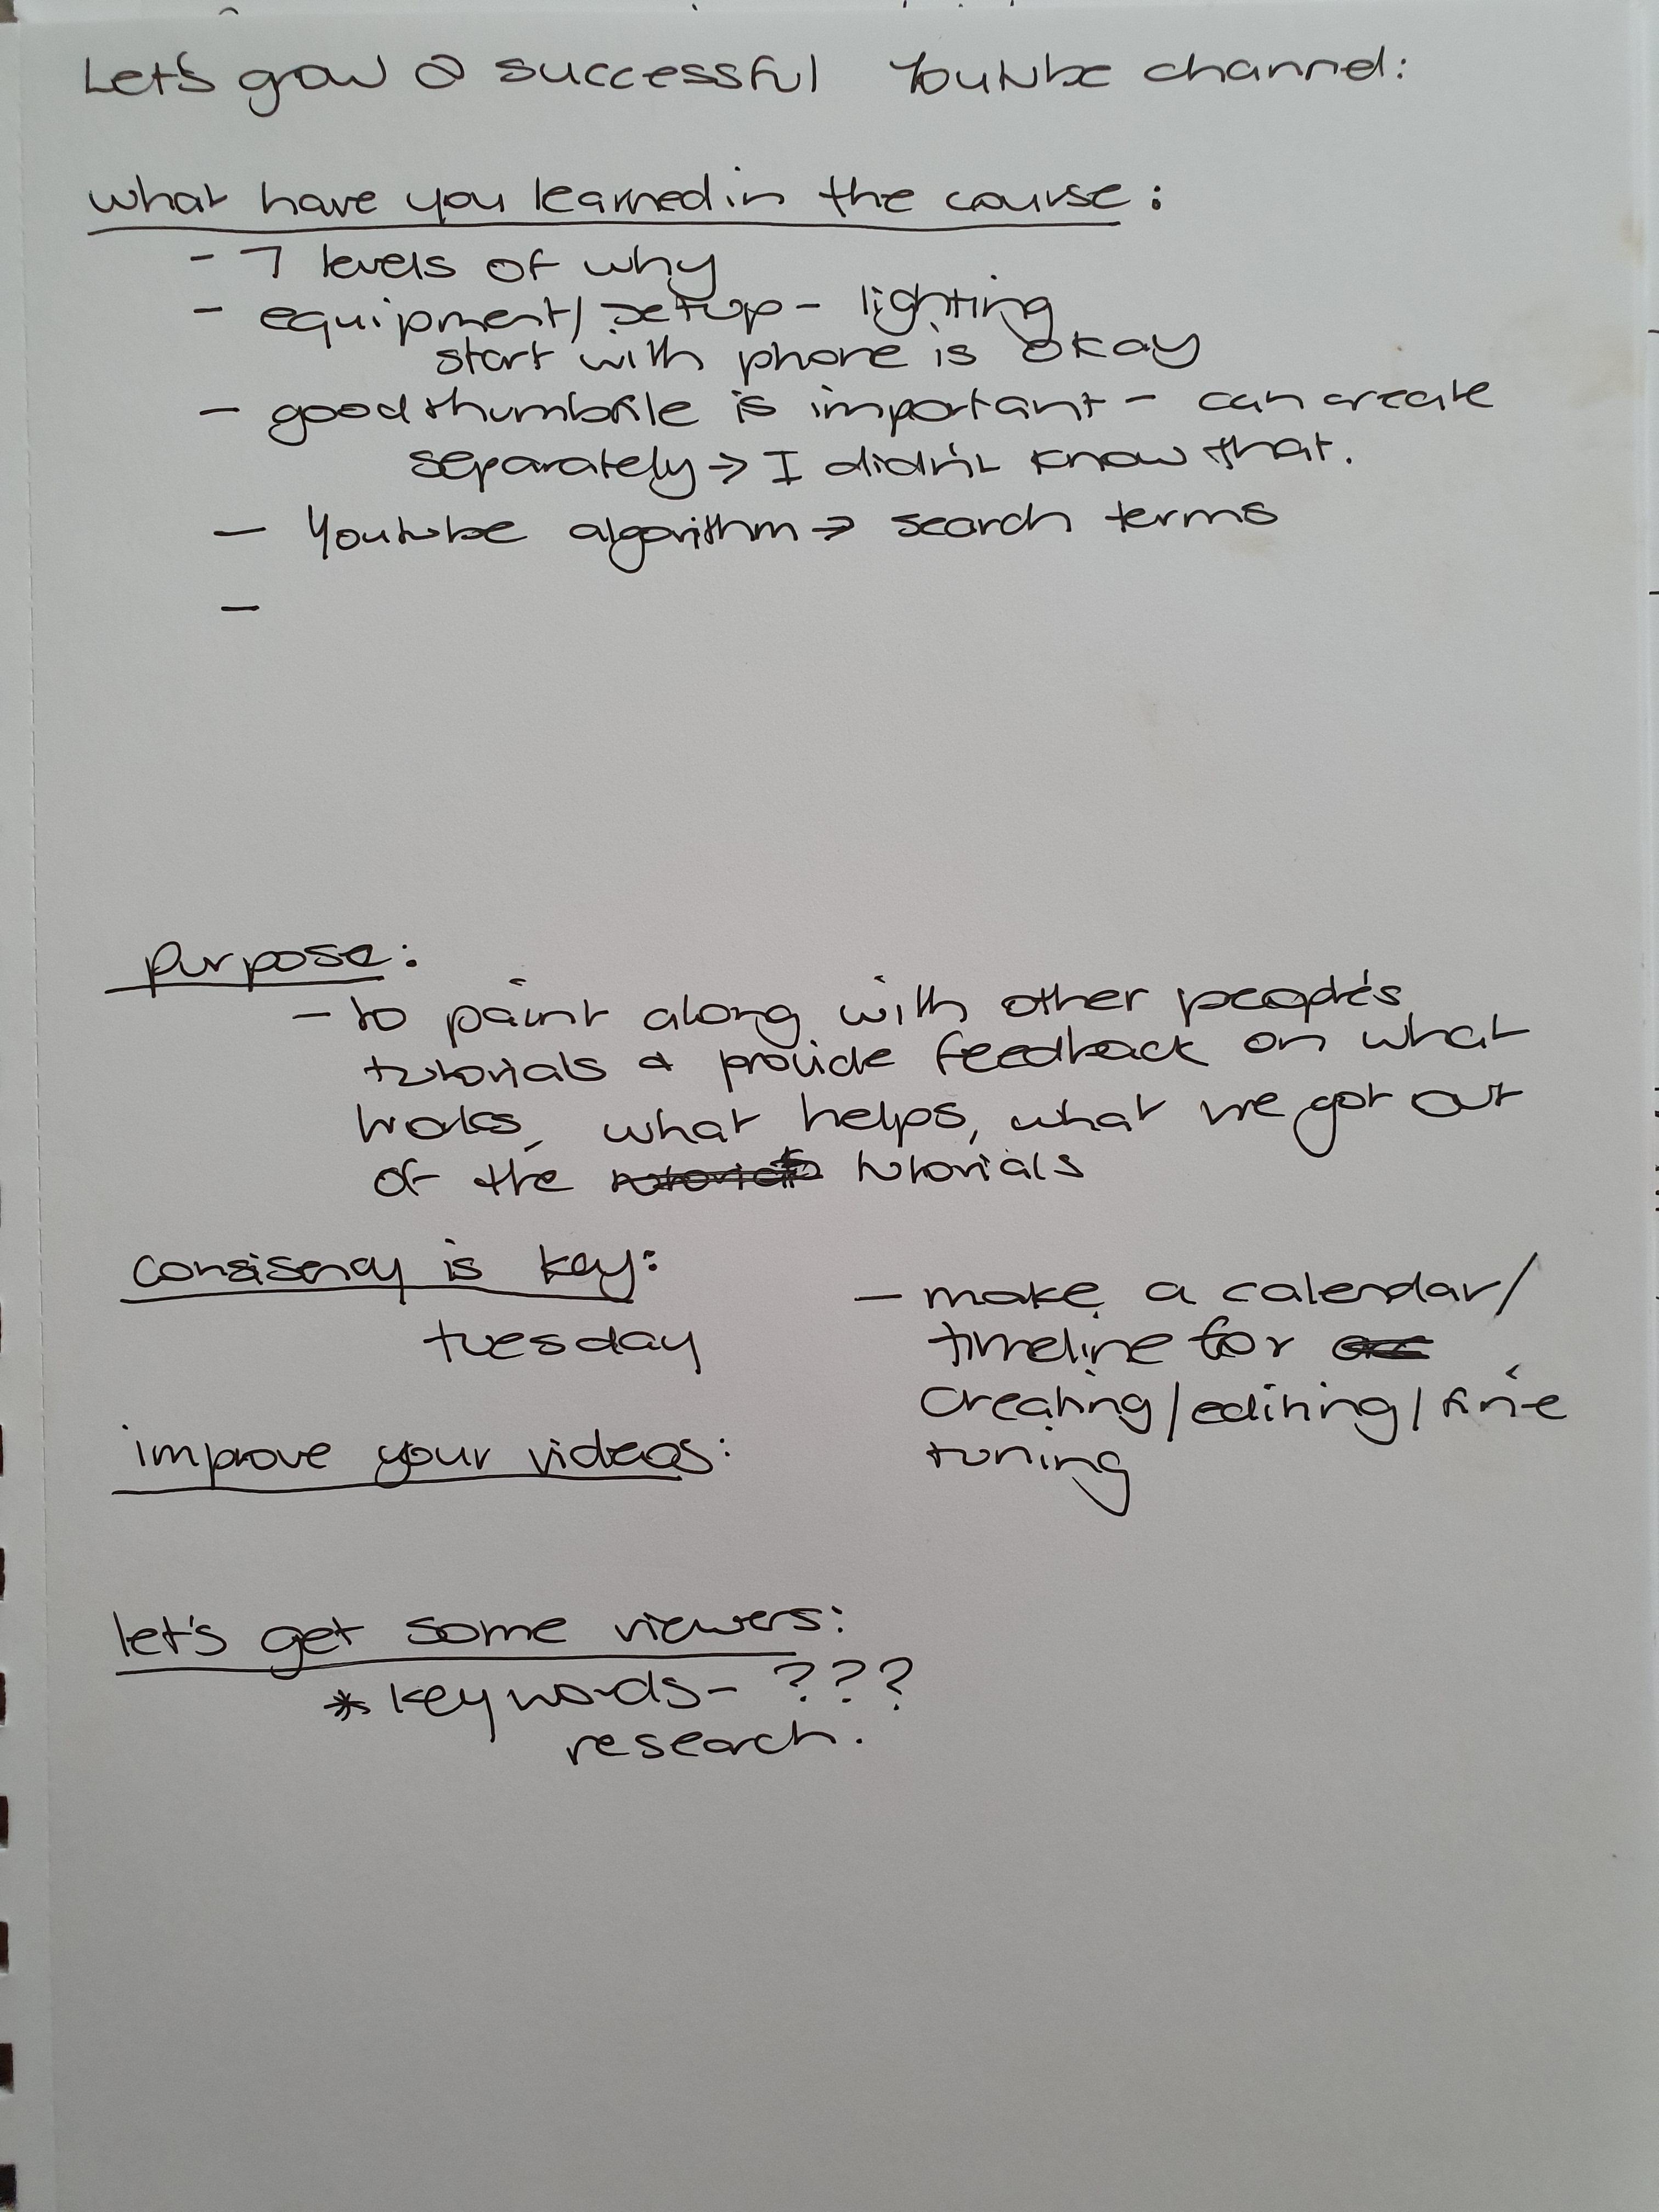 Let's grow a successful Youtube channel:
what have you learned in the course:
- 7 levels of why
- equipment/setup - lighting
start with phone is okay
- good thumbnile is important - can create
separately → I didn't know that.
- Youtube algorithm → search terms
-
purpose:
- to paint along with other people's
tutorials & provide feedback on what
works, what helps, what we got out
of the tutorials
consisency is key:
tuesday
- make a calendar/
timeline for
creating/editing/fine
tuning
improve your videos:
let's get some viewers:
* keywords - ???
research.